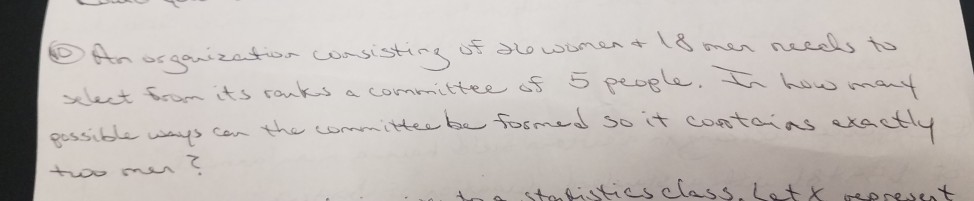 ⑩ An organization consisting of 26 women + 18 men needs to
select from its ranks a committee of 5 people. In how many
possible ways can the committee be formed so it contains exactly
two men?
to a statistics class. Let X represent